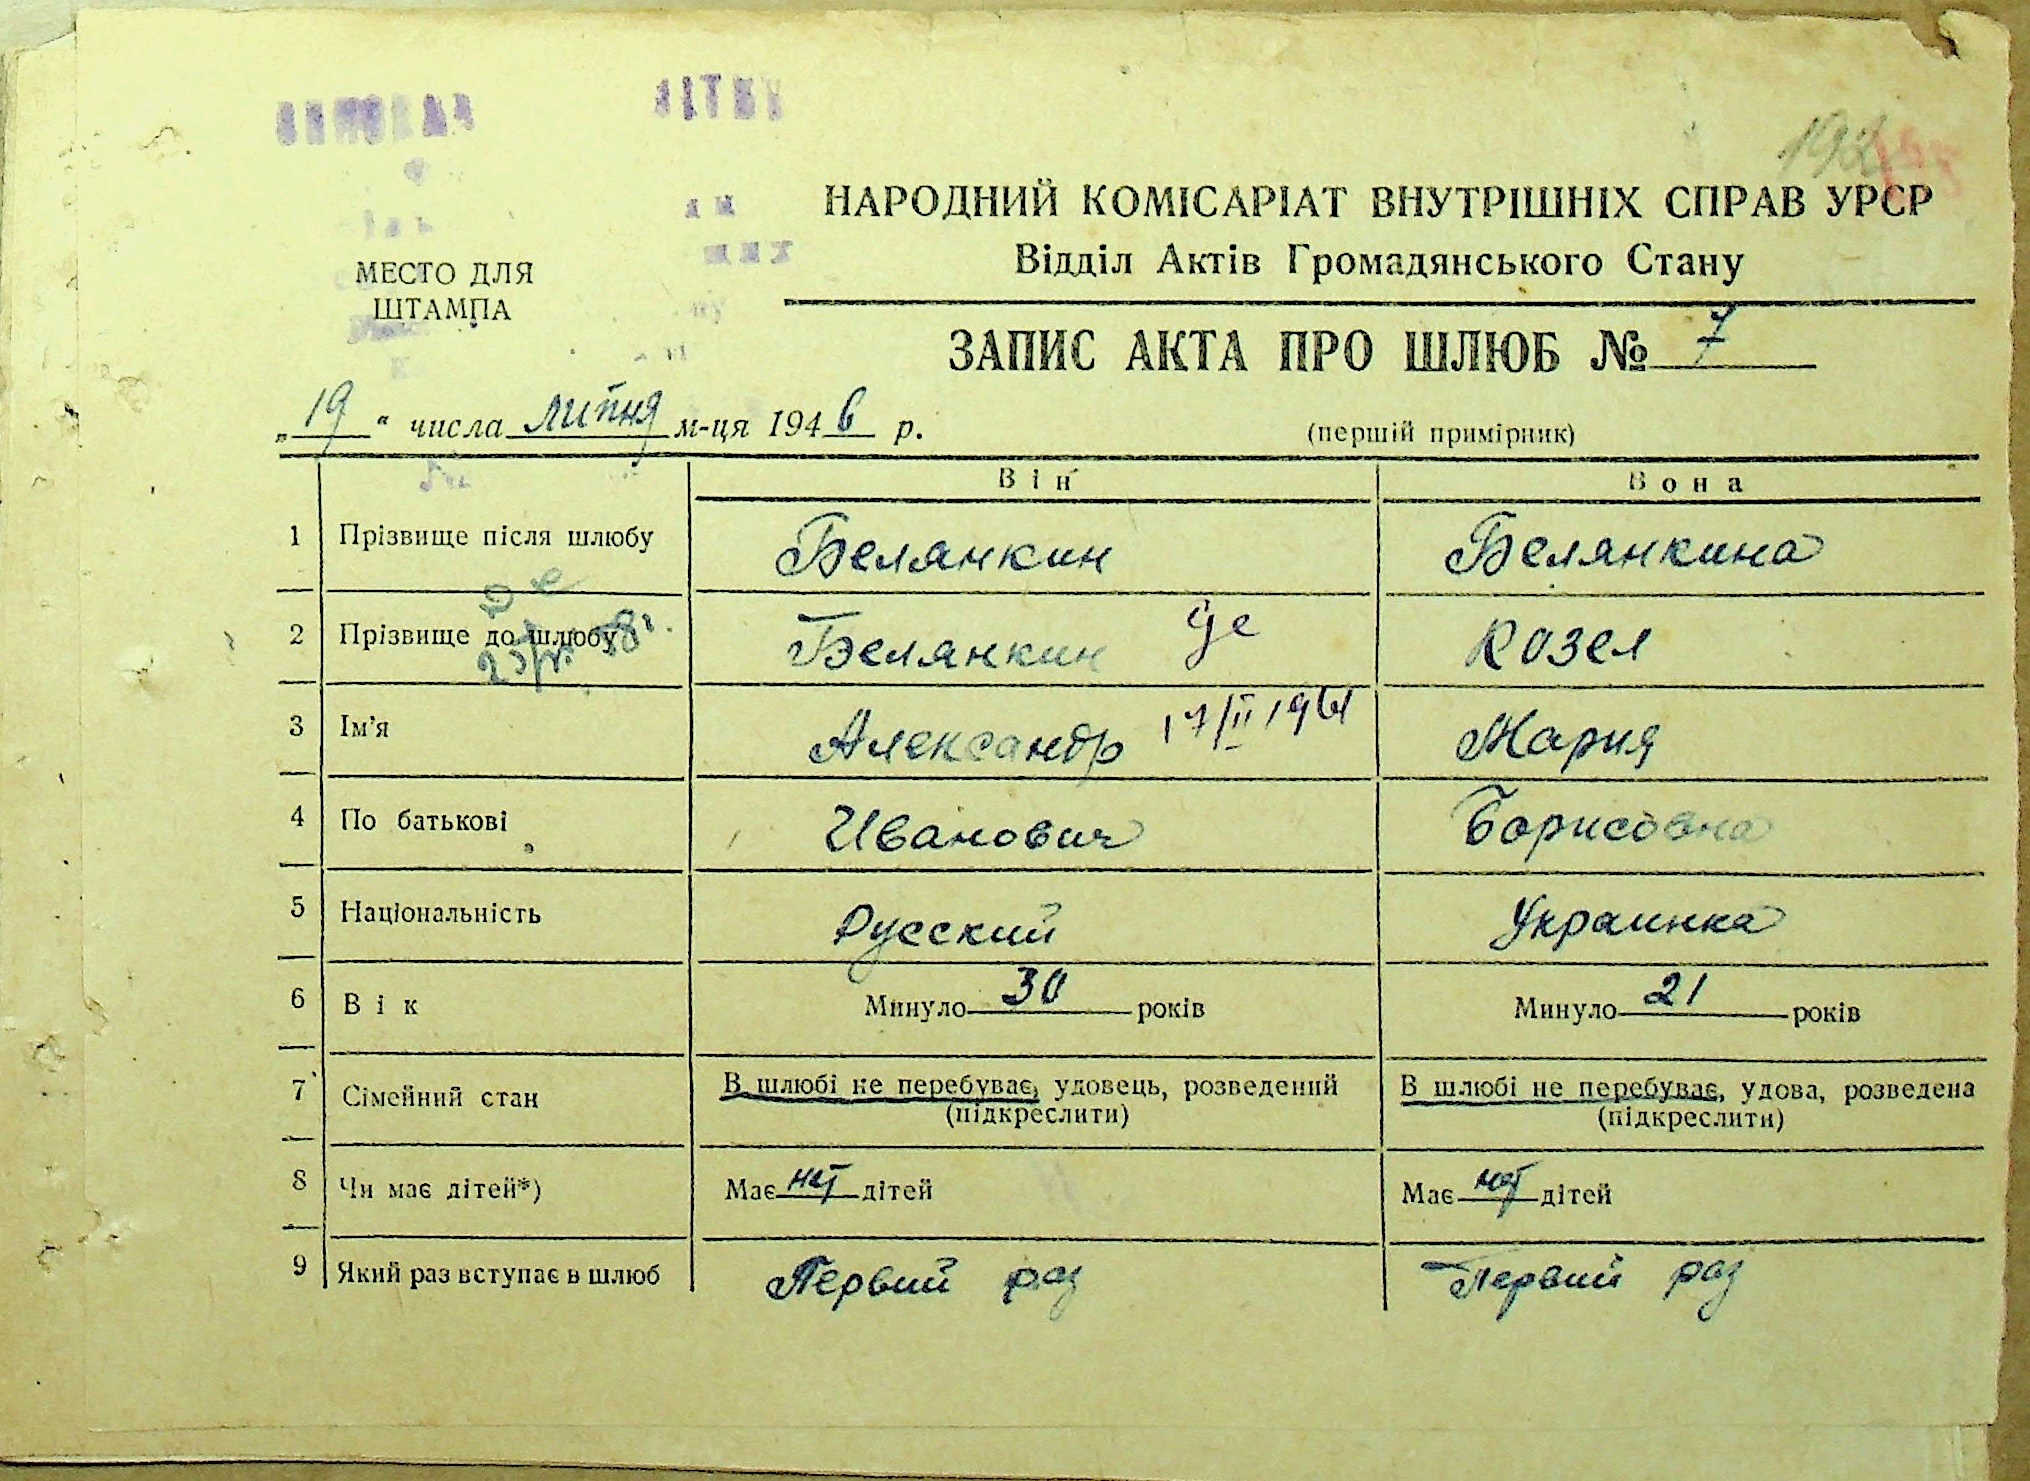 НАРОДНИЙ КОМІСАРІАТ ВНУТРІШНІХ СПРАВ УРСР
Відділ Актів Громадянського Стану
МЕСТО ДЛЯ
ШТАМПА
ЗАПИС АКТА ПРО ШЛЮБ № 7
„19“ числа липня м-ця 1946 р.
(першій примірник)
Він Вона
1 Прізвище після шлюбу Белянкин Белянкина
2 Прізвище до шлюбу Белянкин Козел
3 Ім’я Александр 17/II 1961 Мария
4 По батькові Иванович Борисовна
5 Національність Русский Украинка
6 Вік Минуло 30 років Минуло 21 років
7 Сімейний стан В шлюбі не перебуває, удовець, розведений В шлюбі не перебуває, удова, розведена
(підкреслити) (підкреслити)
8 Чи має дітей*) Має нет дітей Має нет дітей
9 Який раз вступає в шлюб Первий раз Первий раз